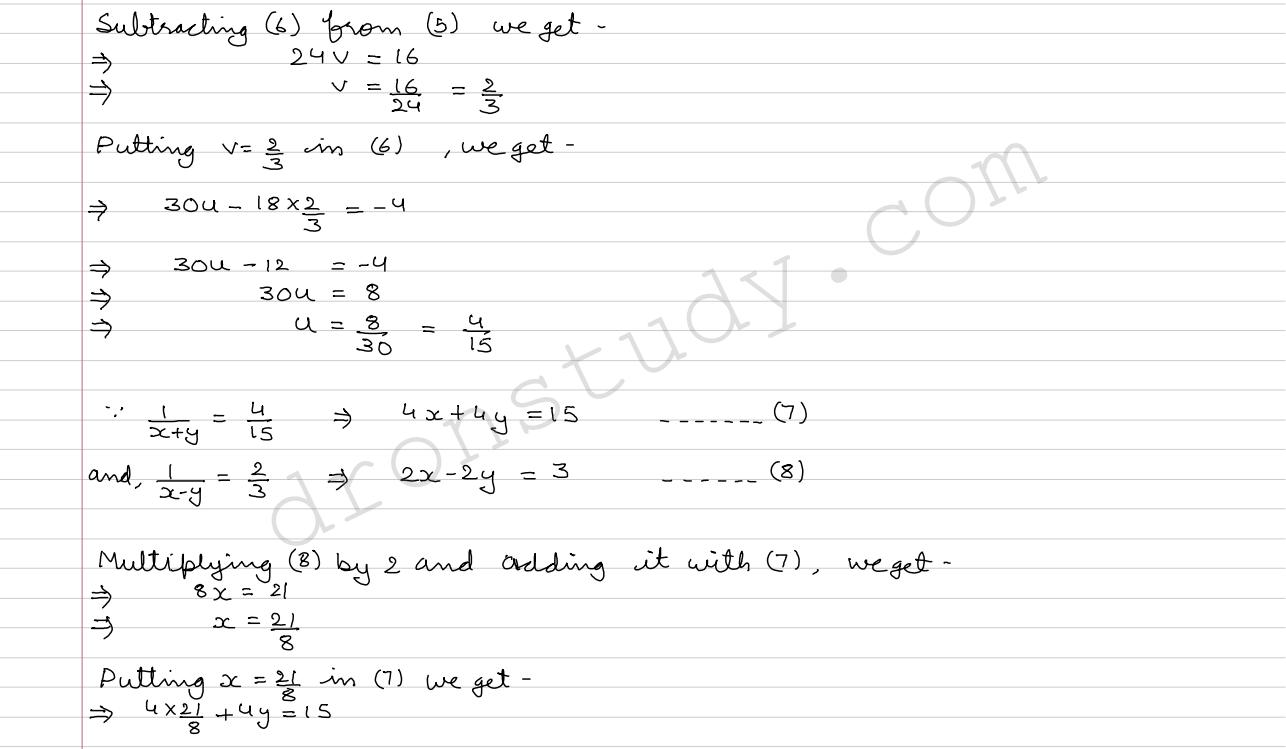 Subtracting (6) from (5) we get -
⇒ 24v = 16
⇒ v = 16/24 = 2/3
Putting v = 2/3 in (6) , we get -
⇒ 30u - 18 × 2/3 = -4
⇒ 30u - 12 = -4
⇒ 30u = 8
⇒ u = 8/30 = 4/15
∵ 1/(x+y) = 4/15 ⇒ 4x + 4y = 15 ------- (7)
and, 1/(x-y) = 2/3 ⇒ 2x - 2y = 3 ------ (8)
Multiplying (8) by 2 and adding it with (7), we get -
⇒ 8x = 21
⇒ x = 21/8
Putting x = 21/8 in (7) we get -
⇒ 4 × 21/8 + 4y = 15
dronstudy.com